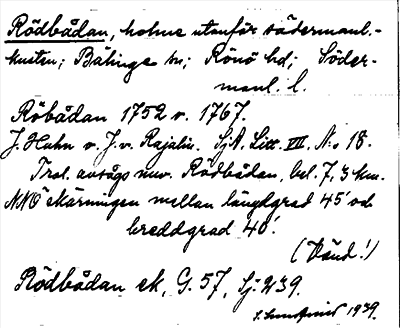 Rödbådan, holme utanför södermanl.-
kusten; Bälinge sn; Rönö hd; Söder-
manl. l.
Röbådan 1752 v. 1767.
J. Hahn v. J. v. Rajalin. SjA. Litt. VII, N:o 18.
Trol. avsågs nuv. Rödbådan, bel. 7,3 km.
NNO skärningen mellan längdgrad 45' och
breddgrad 40'.
(Vänd!)
Rödbådan ek, G. 57, Sj. 239.
1939.